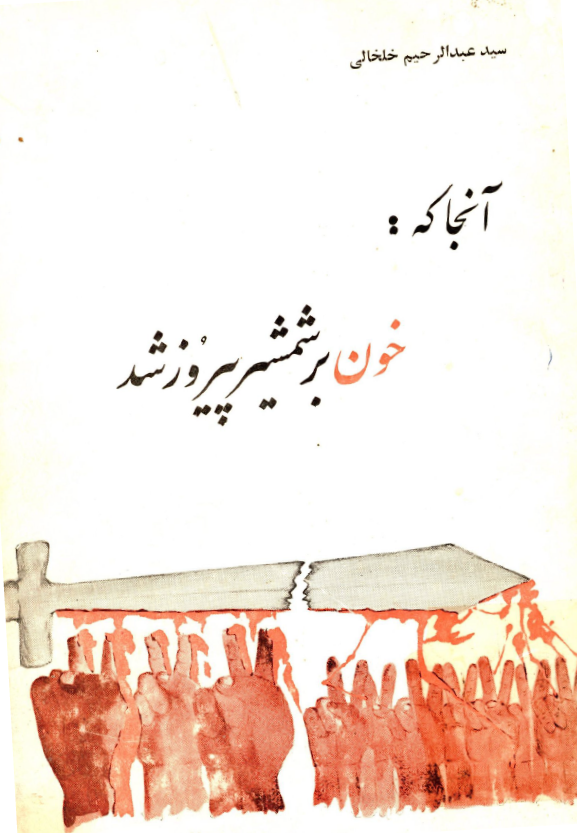 سید عبدالرحیم خلخالی
آنجا که :
خون بر شمشیر پیروز شد